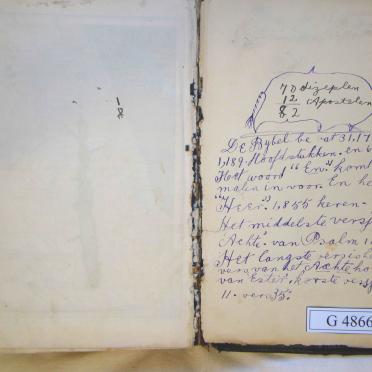 1
8
70 dizeplen
12 Apostelen
82
De Bybel be vat 31,17
1,189. Hoofdstukken. en 6
Het woord "En" komt
malen in voor. En he
"Heer". 1,855 keren.
Het middelste versje
Achte". van Psalm 1
Het langste versje is he
vers van het Achte ho
van Ester. korste vers
11. vers 35.
G 4866